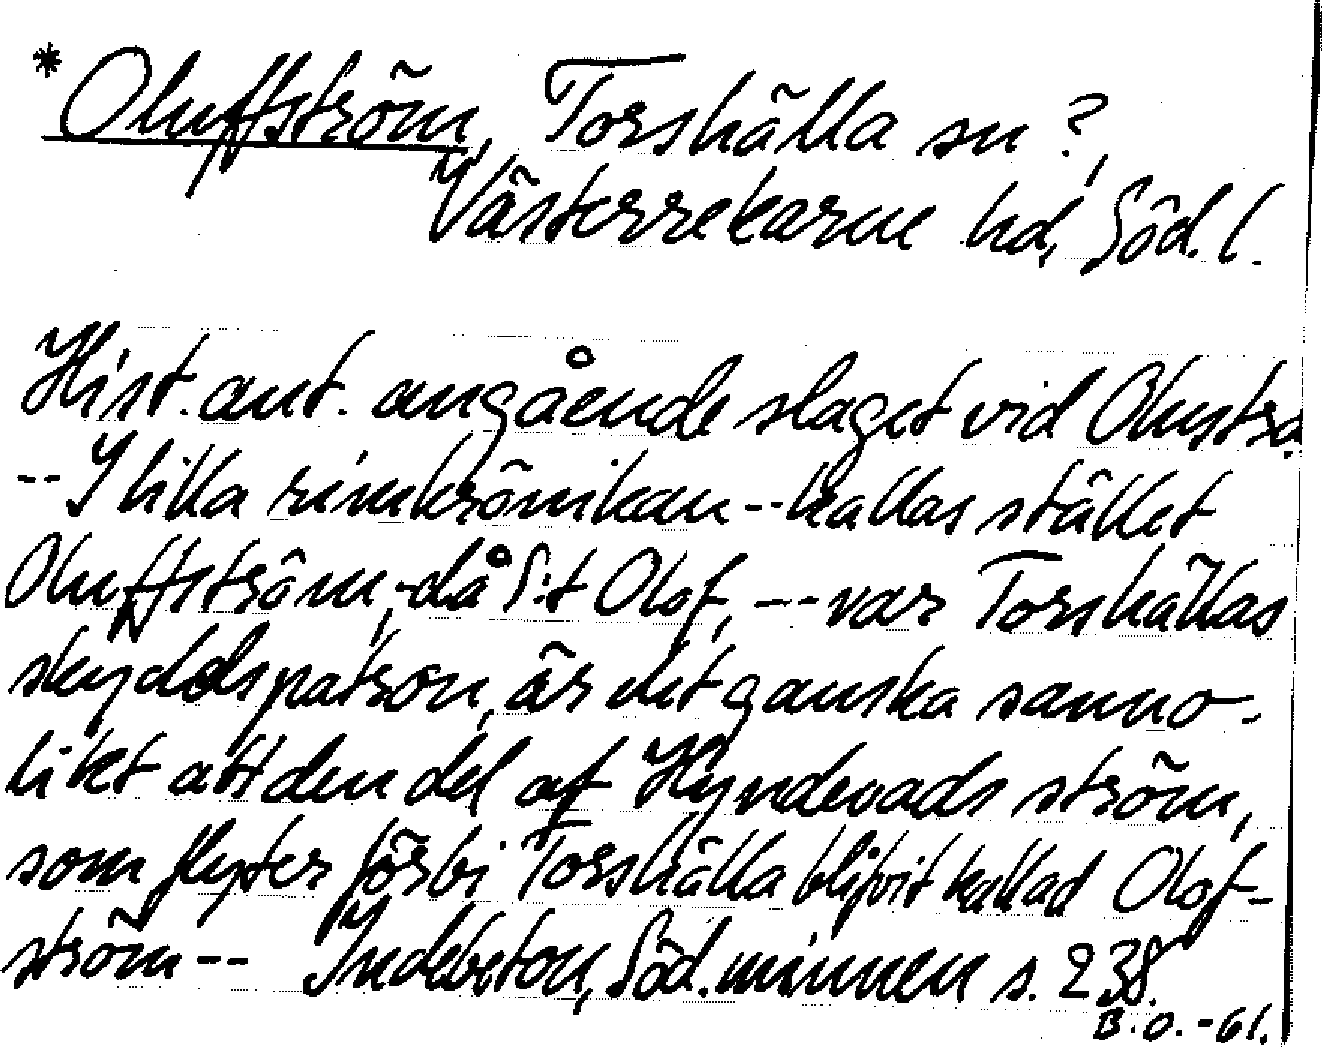 *Oluffström, Torshälla sn?,
Västerrekarne hd, Söd. l.
Hist. ant. angående slaget vid Olustra
-- I lilla rimkrönikan -- kallas stället
Oluffström, -då S:t Olof, -- var Torshällas
skyddspatron, är det ganska sanno-
likt att den del af Hyndevads ström,
som flyter förbi Torshälla blifvit kallad Olof-
ström -- Indebetou, Söd. minnen s. 238.
B.O. -61.